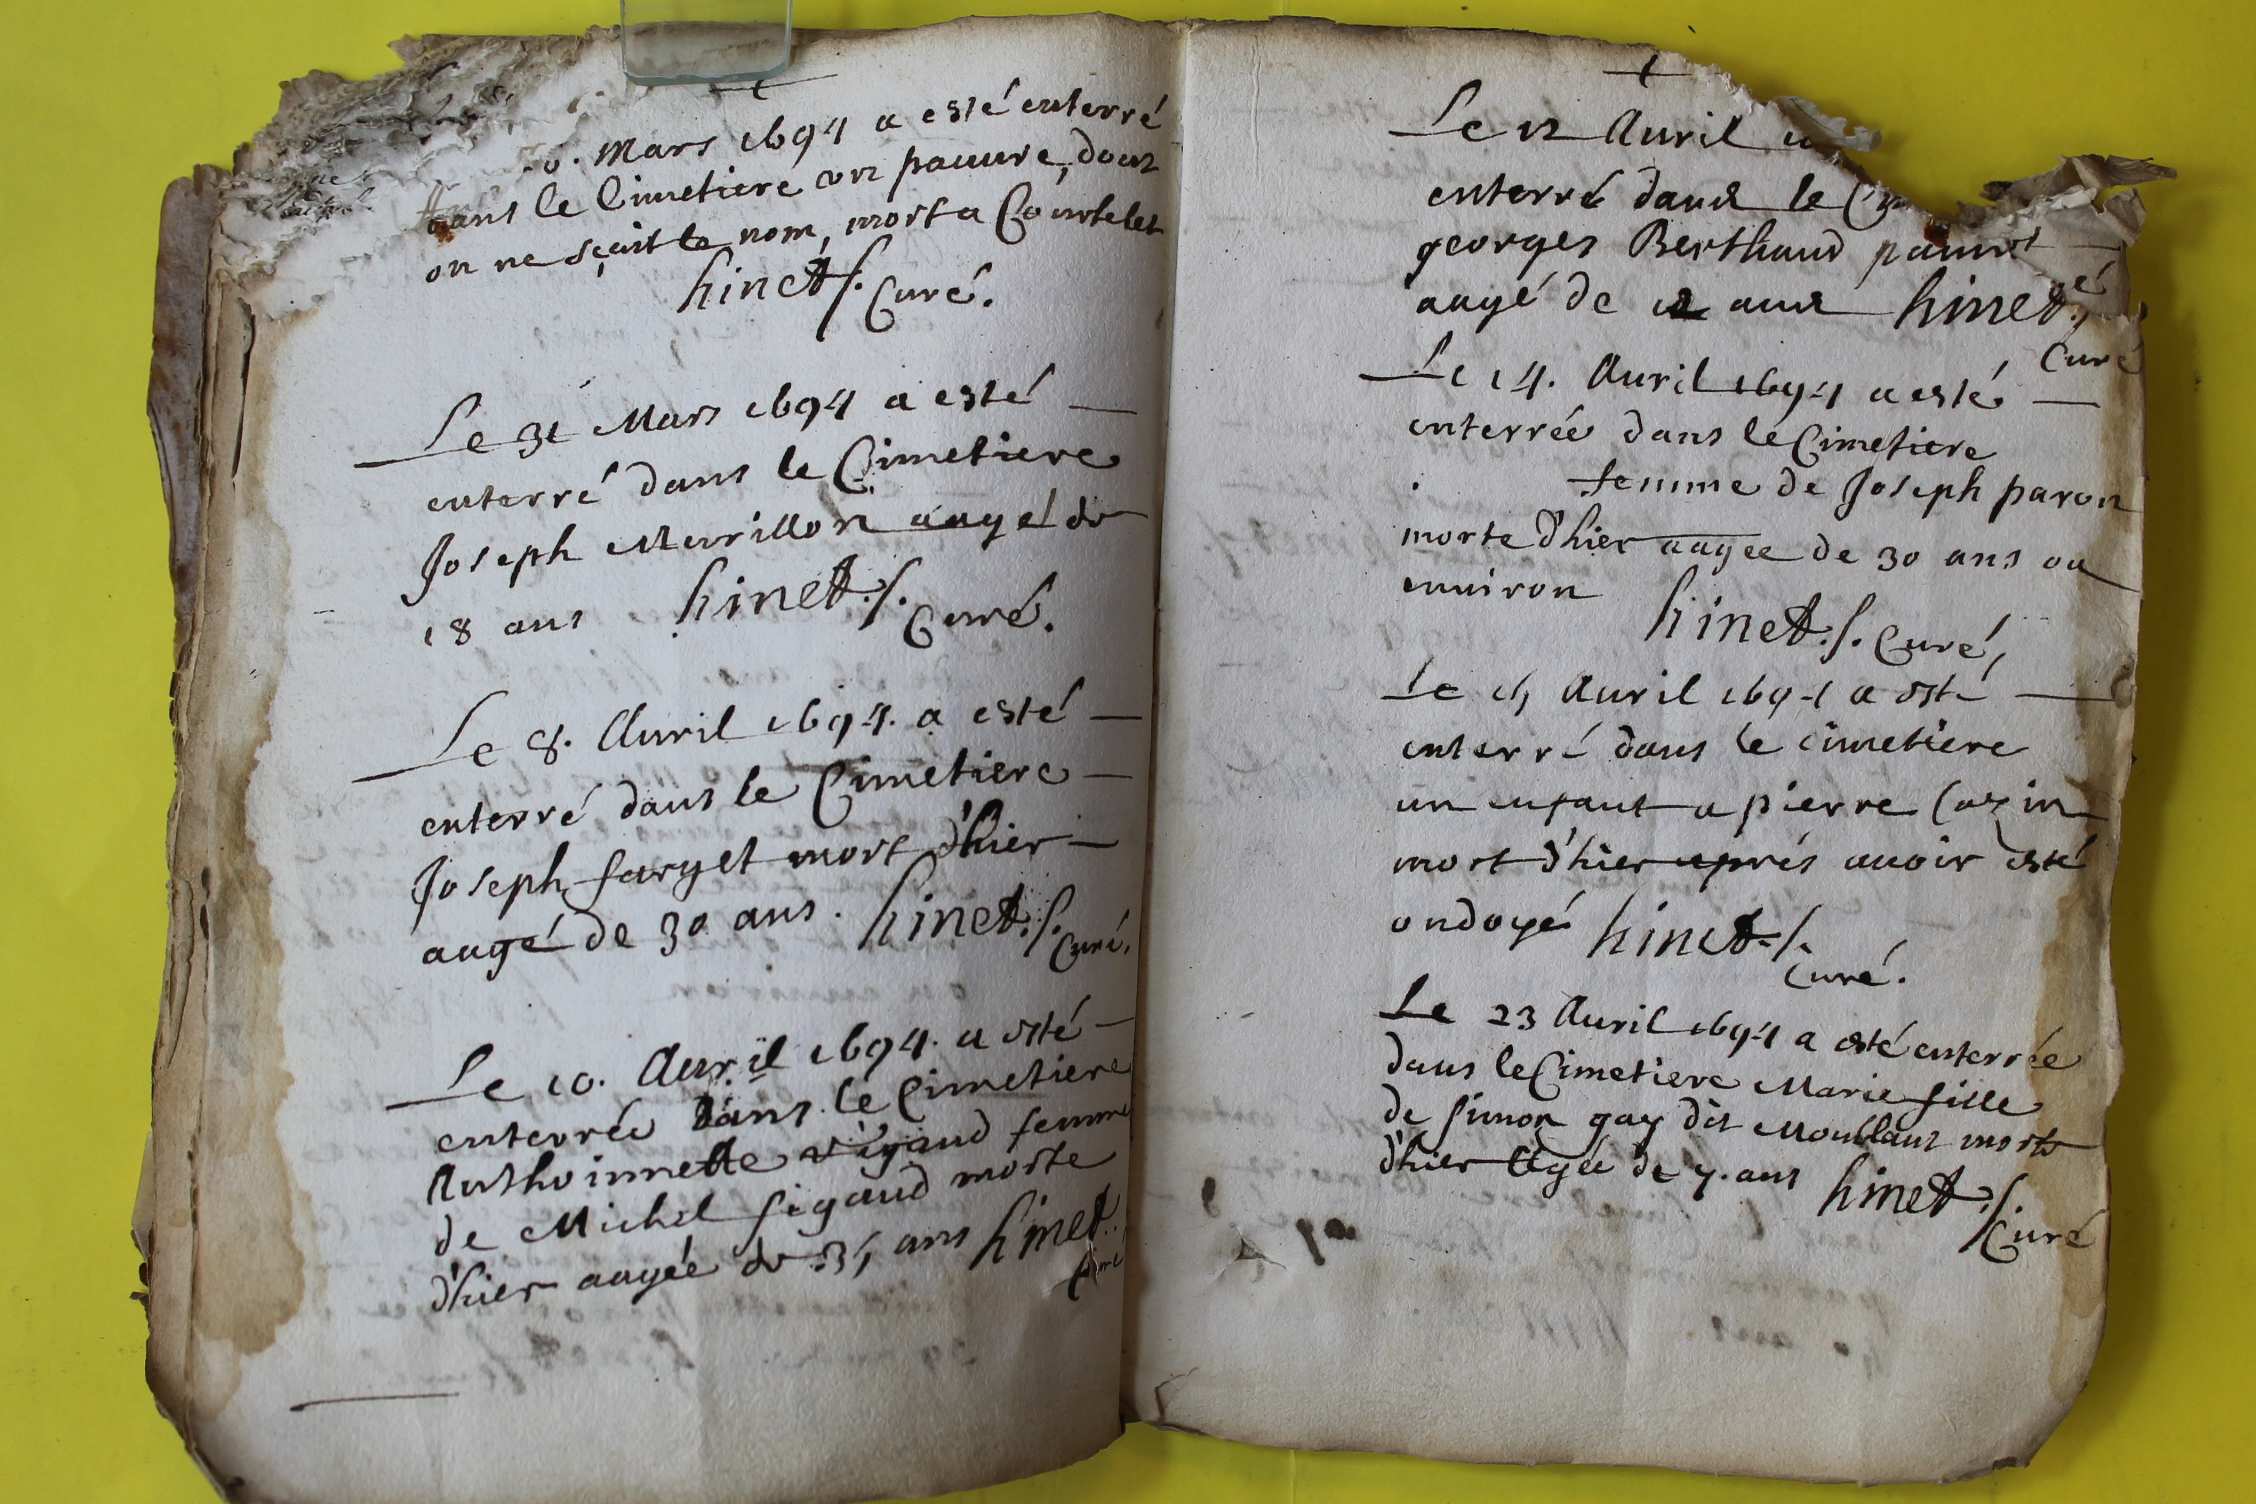 0. Mars 1694 a esté enterré
dans le Cimetiere un pauure, dont
on ne sçait le nom, mort a Courtelet
hinet. f. Curé.
Le 31 Mars 1694 a esté
enterré dans le Cimetiere
Joseph Meurillon aagé de
18 ans hinet. f. Curé.
Le 8. Auril 1694. a esté
enterré dans le Cimetiere
Joseph farget mort d'hier
aagé de 30 ans. hinet. f.
Curé.
Le 10. Auril 1694. a esté
enterrée dans le Cimetiere
Anthoinnette vigaud femme
de Michel sigaud morte
d'hier aagée de 35 ans hinet.
Curé
Le 12 Auril
enterré dans le
georges Berthaud pauure
aagé de 12 ans hinet.
Curé
Le 14. Auril 1694 a esté
enterrée dans le Cimetiere
femme de Joseph paron
morte d'hier aagée de 30 ans ou
enuiron
hinet. f. Curé,
Le 15 Auril 1694 a esté
enterré dans le cimetiere
un enfant a pierre Cozin
mort d'hier aprés auoir esté
ondoyé hinet. f.
Curé.
Le 23 Auril 1694 a esté enterrée
dans le Cimetiere Marie fille
de simon gay dit Montblant morte
d'hier âgée de 7. ans hinet. f.
Curé